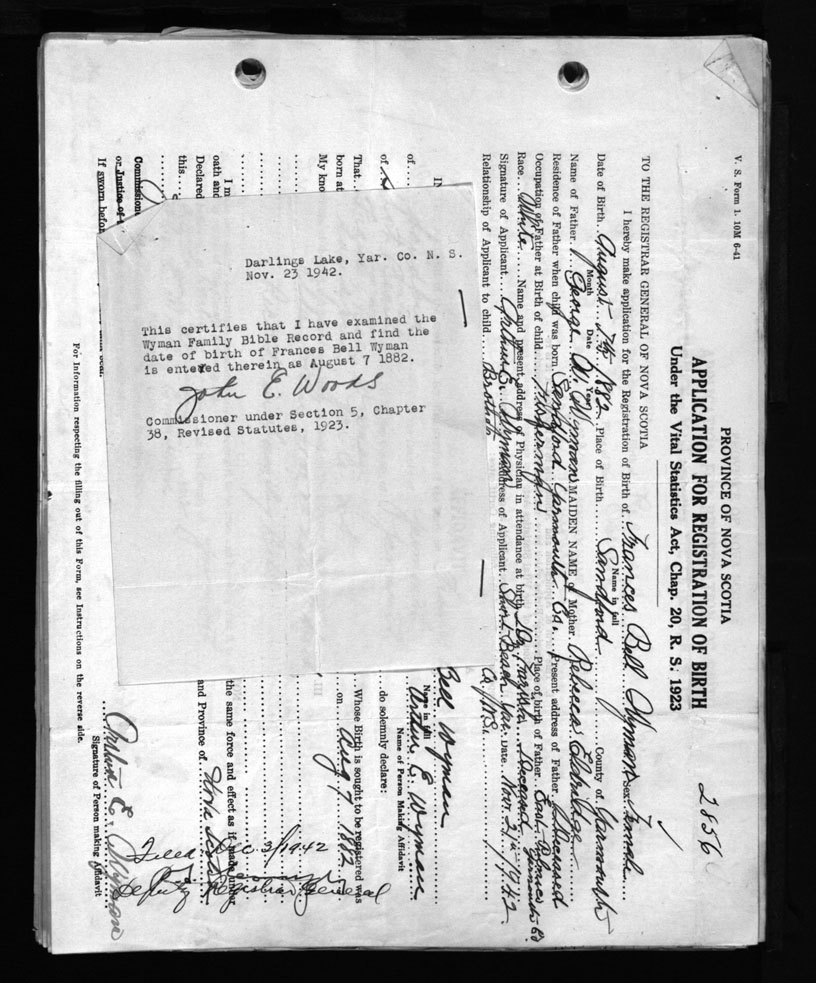 V. S. Form 1. 10M 6-41
2856
PROVINCE OF NOVA SCOTIA
APPLICATION FOR REGISTRATION OF BIRTH
Under the Vital Statistics Act, Chap. 20, R. S. 1923
TO THE REGISTRAR GENERAL OF NOVA SCOTIA
I hereby make application for the Registration of Birth of Frances Bell Wyman Sex Female
Name in full
Date of Birth August 7th 1882 Place of Birth Sandford County of Yarmouth
Month Date Year
Name of Father George W. Wyman MAIDEN NAME of Mother Rebecca Eldridge
Residence of Father when child was born Sandford Yarmouth Co. Present address of Father Deceased
Occupation of Father at Birth of child Fisherman Place of birth of Father East Pubnico Yarmouth Co
Race White Name and present address of Physician in attendance at birth Dr. Deceased
Signature of Applicant Arthur E. Wyman Address of Applicant Short Beach Yar. Co. N.S. Date Nov. 21st 1942
Relationship of Applicant to child Brother
Darlings Lake, Yar. Co. N. S.
Nov. 23 1942.
This certifies that I have examined the
Wyman Family Bible Record and find the
date of birth of Frances Bell Wyman
is entered therein as August 7 1882.
John E. Woods
Commissioner under Section 5, Chapter
38, Revised Statutes, 1923.
IN
Bell Wyman
Name in full
of Arthur E. Wyman
Name of Person Making Affidavit
of do solemnly declare:
That Whose Birth is sought to be registered was
born at on Aug 7 1882
My kno
I m
oath and the same force and effect as if made under
Declared and Province of Nova Scotia
this
Commissione
or Justice of
If sworn befor
Arthur E. Wyman
Signature of Person making Affidavit
Filed Dec 3/1942
Deputy Registrar General
For Information respecting the filling out of this Form, see Instructions on the reverse side.